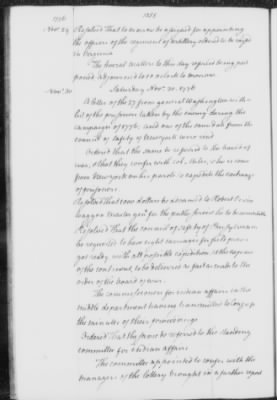 1776
Nov. 29
Resolved That to morrow be assigned for appointing
the officers of the regiment of artillery ordered to be raised
in Virginia
The several matters to this day referred being post
poned Adjourned to 10 o'clock to morrow.
Saturday Nov. 30. 1776
Nov. 30
A letter of the 27 from general Washington with a
list of the prisoners taken by the enemy during the
campaign of 1776. and one of the same date from the
council of safety of New york were read
Ordered that the same be referred to the board of
war, & that they confer with col. Miles, who is come
from New york on his parole to expedite the exchange
of prisoners.
Resolved That two dollars be advanced to Robert
waggon master for the public service he to be accountable
Resolved That the council of safety of Pensylvania
be requested to have eight carriages for field pieces
got ready with all possible expedition at the expence
of the continent, to be delivered as fast as made to the
order of the board of war.
The commissioners for indian affairs in the
middle department having transmitted to Congress
the minutes of their proceedings
Ordered That the same be referred to the standing
committee for indian affairs
The committee appointed to confer with the
managers of the lottery brought in a farther report